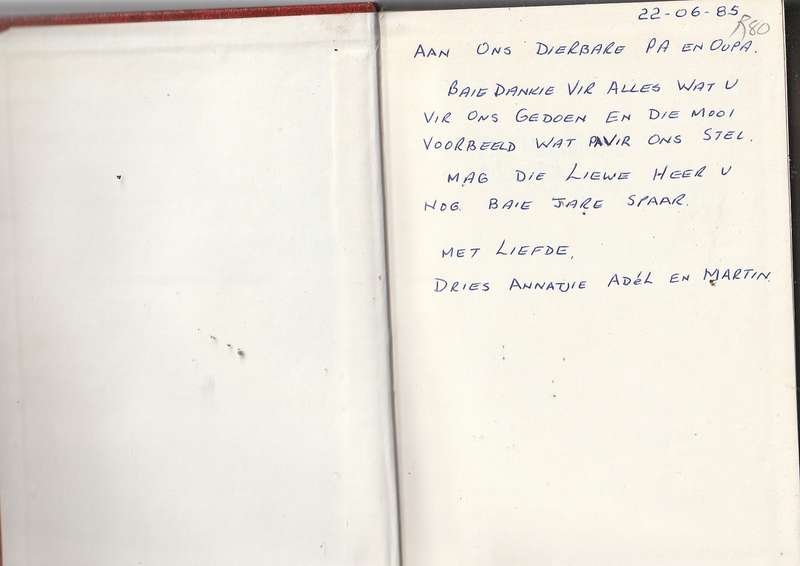 22-06-85
R80
AAN ONS DIERBARE PA EN OUPA.
BAIE DANKIE VIR ALLES WAT U
VIR ONS GEDOEN EN DIE MOOI
VOORBEELD WAT PA VIR ONS STEL.
MAG DIE LIEWE HEER U
NOG BAIE JARE SPAAR.
MET LIEFDE,
DRIES ANNATJIE ADÉL EN MARTIN